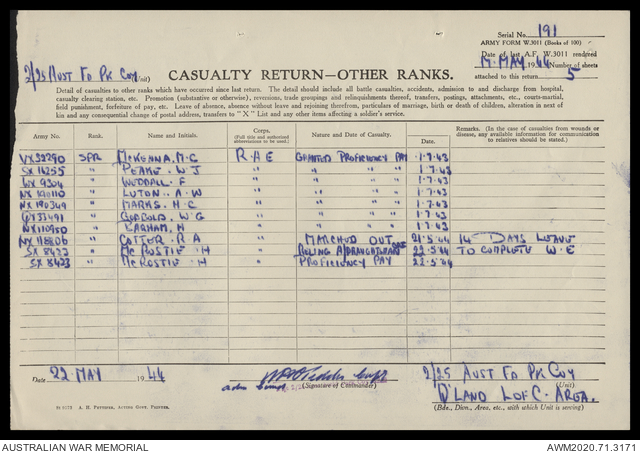 Serial No. 191
ARMY FORM W.3011 (Books of 100)
Date of last A.F. W.3011 rendered
17. MAY 1944 Number of sheets
attached to this return 5
2/25 AUST FD PK COY (Unit)
CASUALTY RETURN—OTHER RANKS.
Detail of casualties to other ranks which have occurred since last return. The detail should include all battle casualties, accidents, admission to and discharge from hospital,
casualty clearing station, etc. Promotion (substantive or otherwise), reversions, trade groupings and relinquishments thereof, transfers, postings, attachments, etc., courts-martial,
field punishment, forfeiture of pay, etc. Leave of absence, absence without leave and rejoining therefrom, particulars of marriage, birth or death of children, alteration in next of
kin and any consequential change of postal address, transfers to "X" List and any other items affecting a soldier's service.
Army No. Rank. Name and Initials. Corps. (Full title and authorized abbreviations to be used.) Nature and Date of Casualty. Date. Remarks. (In the case of casualties from wounds or disease, any available information for communication to relatives should be stated.)
VX32290 SPR McKENNA, M. C R A E GRANTED PROFICIENCY PAY 1.7.43
SX 14255 " PEAKE. W J " " " " 1.7.43
WX 9304 " WEDDALL. F " " " " 1.7.43
NX 190110 " LUTON. A. W " " " " 1.7.43
NX 190349 " MARKS. H. C " " " " 1.7.43
QX33491 " W. G " " " " 1.7.43
NX110950 " H " " " " 1.7.43
NX 118806 " COTTER. R A " MARCHED OUT 21.5.44 14 DAYS LEAVE
SX 8423 " McROSTIE. H " 22.5.44 TO COMPLETE W. E
SX 8423 " McROSTIE. H " PROFICIENCY PAY 22.5.44
Date 22 MAY 1944
(Signature of Commander)
2/25 AUST FD PK COY
(Unit)
Q'LAND L OF C. AREA.
(Bde., Divn., Area, etc., with which Unit is serving)
A. H. PETTIFER, ACTING GOVT. PRINTER.
AUSTRALIAN WAR MEMORIAL
AWM2020.71.3171